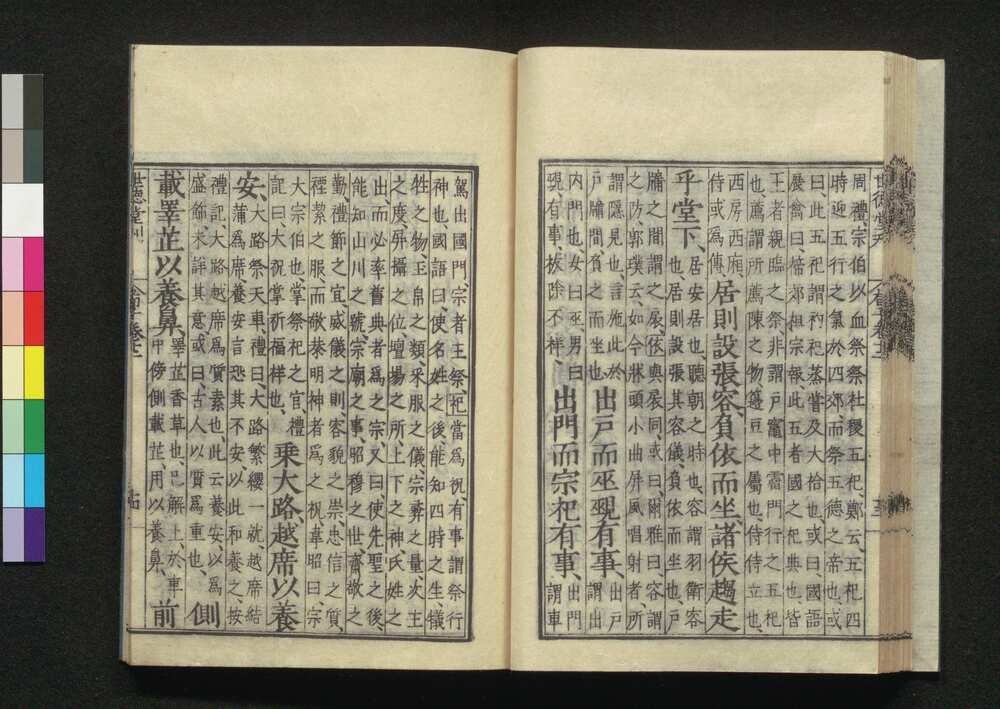 周禮宗伯以血祭祭社稷五祀、鄭云、五祀四
時迎五行之氣於四郊而祭五德之帝也或
曰、此五祀謂礿祀蒸嘗及大祫也、或曰、國語
展禽曰、禘郊祖宗報此五者國之祀典也皆
王者親臨之祭、非謂戶竈中霤門行之五祀
也、薦謂所薦陳之物、籩豆之屬也、侍侍立也、
西房西廂、
侍或爲傳、
居則設張容、負依而坐、諸侯趨走
乎堂下、
居安居也、聽朝之時也、容謂羽衛
居則設張其容儀、負依而坐也、戶
牖之間謂之扆、依與扆同、或曰、爾雅曰、容謂
之防、郭璞云、如今牀頭小曲屏風唱射者所
謂隱見也、言施此於
戶牖間負之而坐也、
出戶而巫覡有事、
謂出
內門也、女曰巫、男曰
覡有事、祓除不祥、
出門而宗祀有事、
出門
謂車
駕出國門、宗者主祭、祀當爲祝、有事謂祭行
神也、國語曰、使名姓之後、能知四時之生、犧
牲之物、玉帛之類、采服之儀、宗彝之量、次主
之度、屏攝之位、壇場之所、上下之神、氏姓之
出、而必率舊典者爲之宗、又曰、使先聖之後、
能知山川之號、宗廟之事、昭穆之世、齋敬之
勤、禮節之宜、威儀之則、容貌之崇、忠信之質、
禋絜之服、而敬恭明神者爲之祝、韋昭曰、宗
大宗伯也、掌祭祀之官、禮
記曰、大祝掌祈福祥也、
乘大路越席以養
安、
大路祭天車、禮曰、大路繁纓一就、越席結
蒲爲席、養安言恐其不安、以此和養之、按
禮記大路越席爲質素也、此云養安、以爲
盛飾、未詳其意、或曰、古人以質爲重也、
側
載睪芷以養鼻、
睪芷香草也、已解上、於車
中傍側載芷、用以養鼻、
前